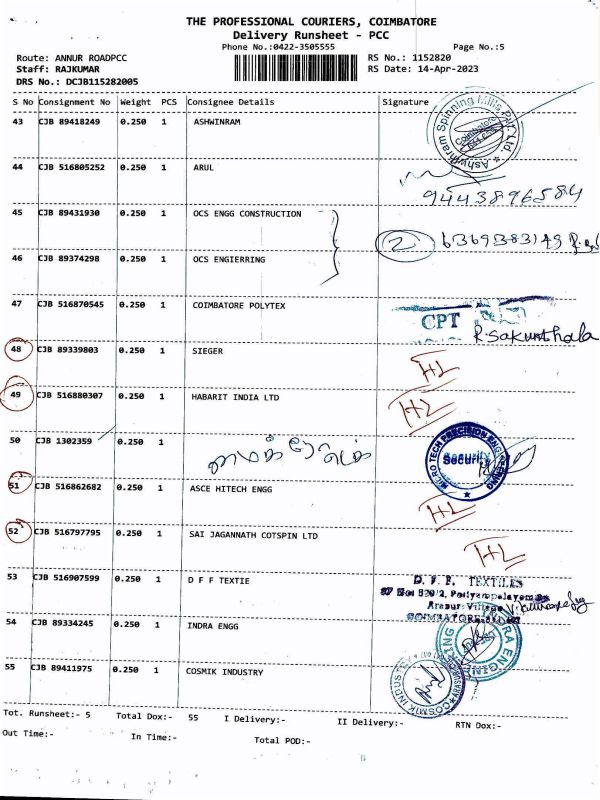 THE PROFESSIONAL COURIERS, COIMBATORE
Delivery Runsheet - PCC
Phone No.:0422-3505555 Page No.:5
Route: ANNUR ROADPCC RS No.: 1152820
Staff: RAJKUMAR RS Date: 14-Apr-2023
DRS No.: DCJB115282005
S No Consignment No Weight PCS Consignee Details Signature
43 CJB 89418249 0.250 1 ASHWINRAM
Ashwhram Spinning Mills Pvt. Ltd. Coimbatore
44 CJB 516805252 0.250 1 ARUL
9443896584
45 CJB 89431930 0.250 1 OCS ENGG CONSTRUCTION
2 6369383149
46 CJB 89374298 0.250 1 OCS ENGIERRING
47 CJB 516870545 0.250 1 COIMBATORE POLYTEX
CPT
R Sakunthala
48 CJB 89339803 0.250 1 SIEGER
HL
49 CJB 516880307 0.250 1 HABARIT INDIA LTD
HL
50 CJB 1302359 0.250 1
MICRO TECH PRECISION ENGINEERING
Security
51 CJB 516862682 0.250 1 ASCE HITECH ENGG
HL
52 CJB 516797795 0.250 1 SAI JAGANNATH COTSPIN LTD
HL
53 CJB 516907599 0.250 1 D F F TEXTIE
D. F. F. TEXTILES
Village
COIMBATORE
54 CJB 89334245 0.250 1 INDRA ENGG
55 CJB 89411975 0.250 1 COSMIK INDUSTRY
Tot. Runsheet:- 5 Total Dox:- 55 I Delivery:- II Delivery:- RTN Dox:-
Out Time:- In Time:- Total POD:-